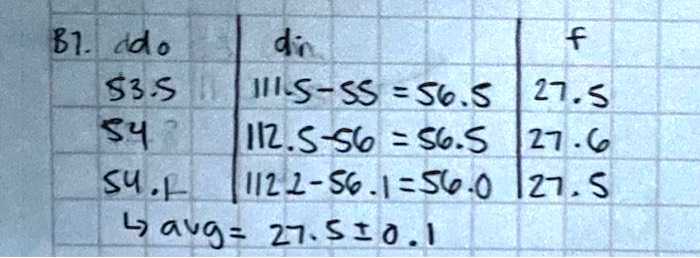 B1. do din f
53.5 111.5-55 = 56.5 27.5
54 112.5-56 = 56.5 27.6
54.1 112.2-56.1 = 56.0 27.5
↳ avg = 27.5 ± 0.1